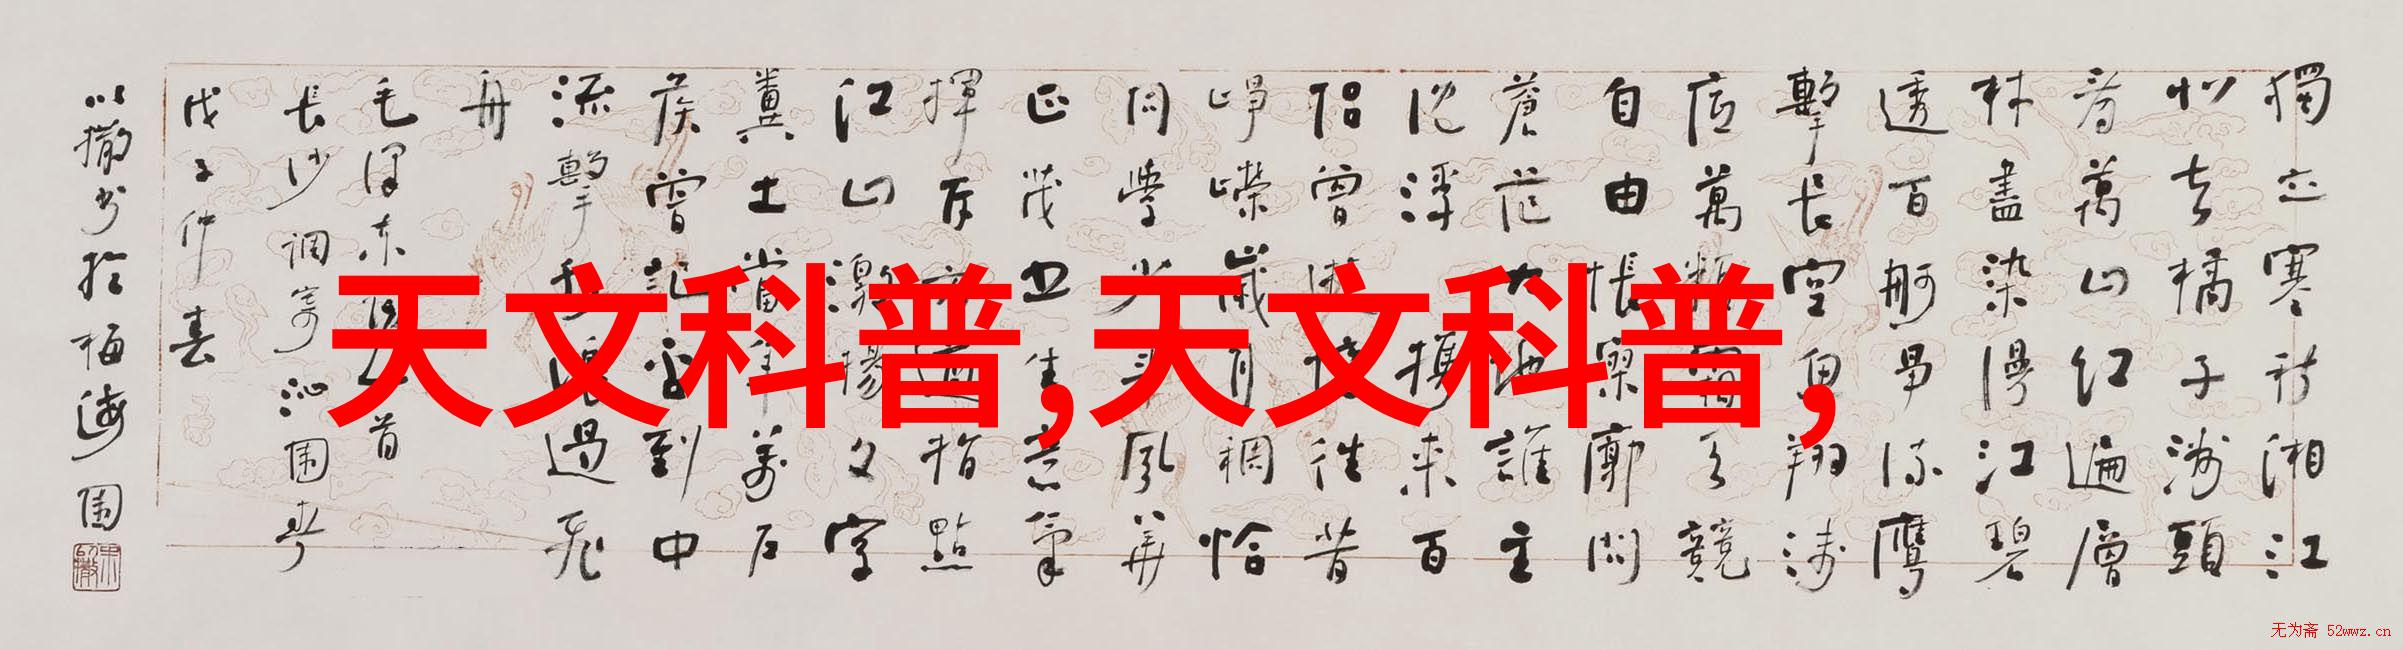 獨立寒秋湘江
北去橘子洲頭
看萬山红遍層
林盡染漫江碧
透百舸爭流鷹
擊長空魚翔淺
底萬類霜天競
自由悵寥廓問
蒼茫大地誰主
沈浮攜來百
侶曾遊憶往昔
崢嶸歲月稠恰
同學少年風華
正茂書生意氣
揮斥方遒指點
江山激揚文字
糞土當年萬户
侯曾記否到中
流擊水浪遏飛
舟
毛澤東詞一首
長沙調寄沁園春
戊子仲春
以撒書於梅海園
天文科普,天文科普,
无为斋 52wwz.cn